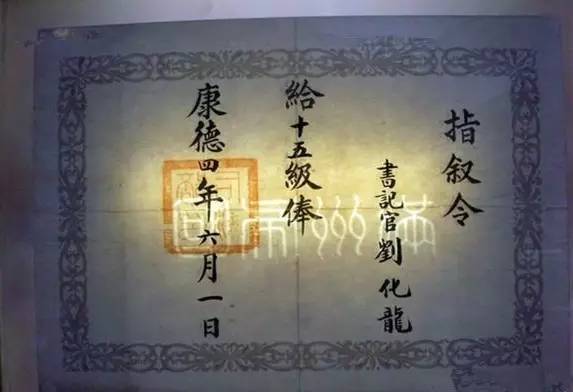 指叙令
書記官劉化龍
給十五級俸
康德四年六月一日
滿州帝國